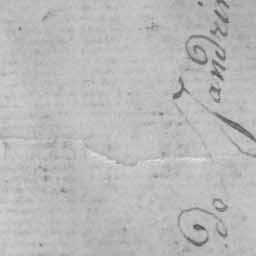 de Jandrin